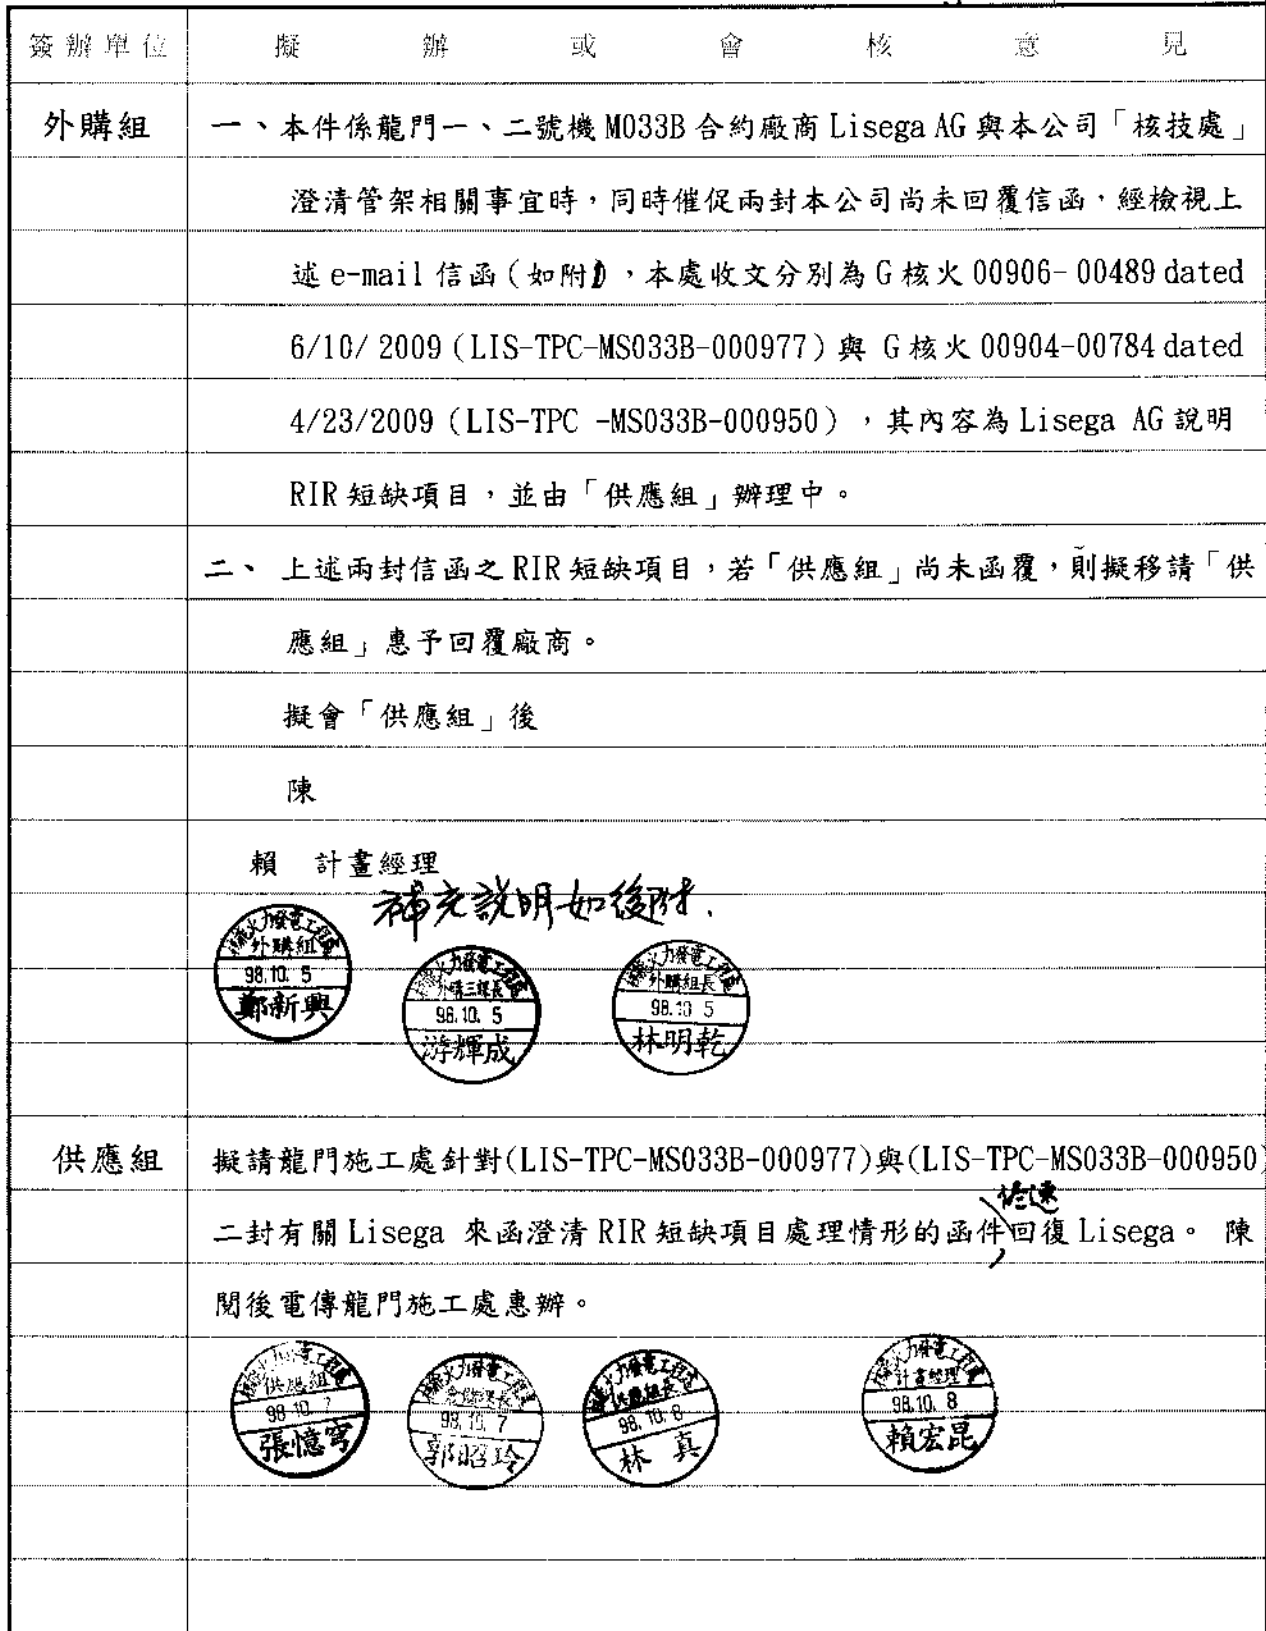 簽辦單位 擬辦或會核意見
外購組 一、本件係龍門一、二號機 M033B 合約廠商 Lisega AG 與本公司「核技處」
澄清管架相關事宜時，同時催促兩封本公司尚未回覆信函，經檢視上
述 e-mail 信函(如附)，本處收文分別為 G 核火 00906-00489 dated
6/10/ 2009 (LIS-TPC-MS033B-000977) 與 G 核火 00904-00784 dated
4/23/2009 (LIS-TPC -MS033B-000950) ，其內容為 Lisega AG 說明
RIR 短缺項目，並由「供應組」辦理中。
二、 上述兩封信函之 RIR 短缺項目，若「供應組」尚未函覆，則擬移請「供
應組」惠予回覆廠商。
擬會「供應組」後
陳
賴 計畫經理
補充說明如後附.
火力發電工程處
外購組
98.10. 5
鄭新興
火力發電工程處
外購三課長
98.10. 5
游輝成
火力發電工程處
外購組長
98.10 5
林明乾
供應組 擬請龍門施工處針對(LIS-TPC-MS033B-000977)與(LIS-TPC-MS033B-000950)
二封有關 Lisega 來函澄清 RIR 短缺項目處理情形的函件回復 Lisega。 陳
閱後電傳龍門施工處惠辦。
火力發電工程處
供應組
98 10. 7
張憶寧
火力發電工程處
98.10. 7
郭昭玲
火力發電工程處
供應組長
98.10.8
林 真
火力發電工程處
計畫經理
98.10. 8
賴宏昆